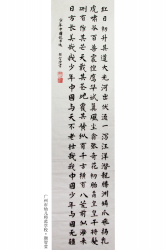 红日初升其道大光河出伏流一泻汪洋潜龙腾渊鳞爪飞扬乳
虎啸谷百兽震惶鹰隼试翼风尘吸张奇花初胎矞矞皇皇干将发
硎有作其芒天戴其苍地履其黄纵有千古横有八荒前途似海来
日方长美哉我少年中国与天不老壮哉我中国少年与国无疆
少年中国说